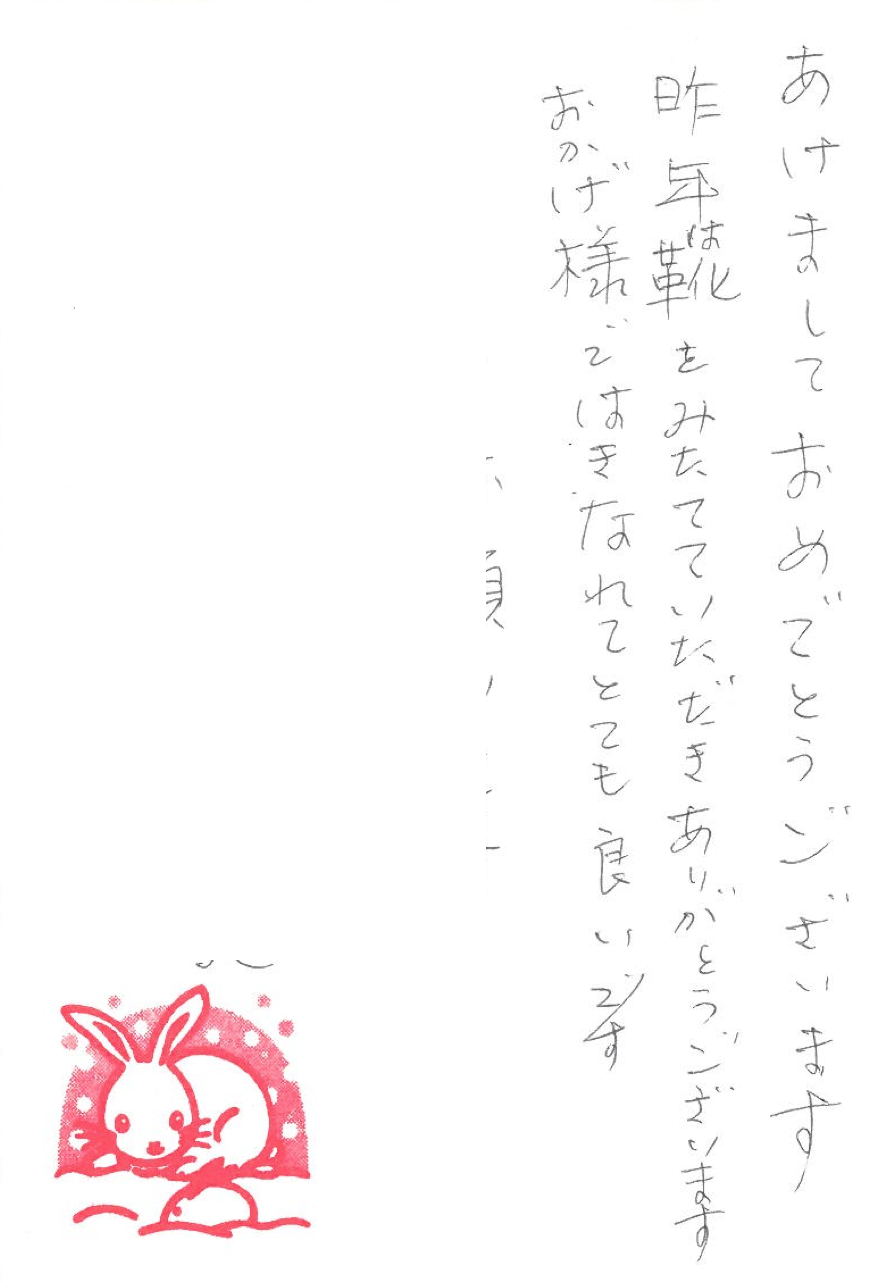 あけましておめでとうございます
昨年は靴をみたてていただきありがとうございます
おかげ様ではきなれてとても良いです